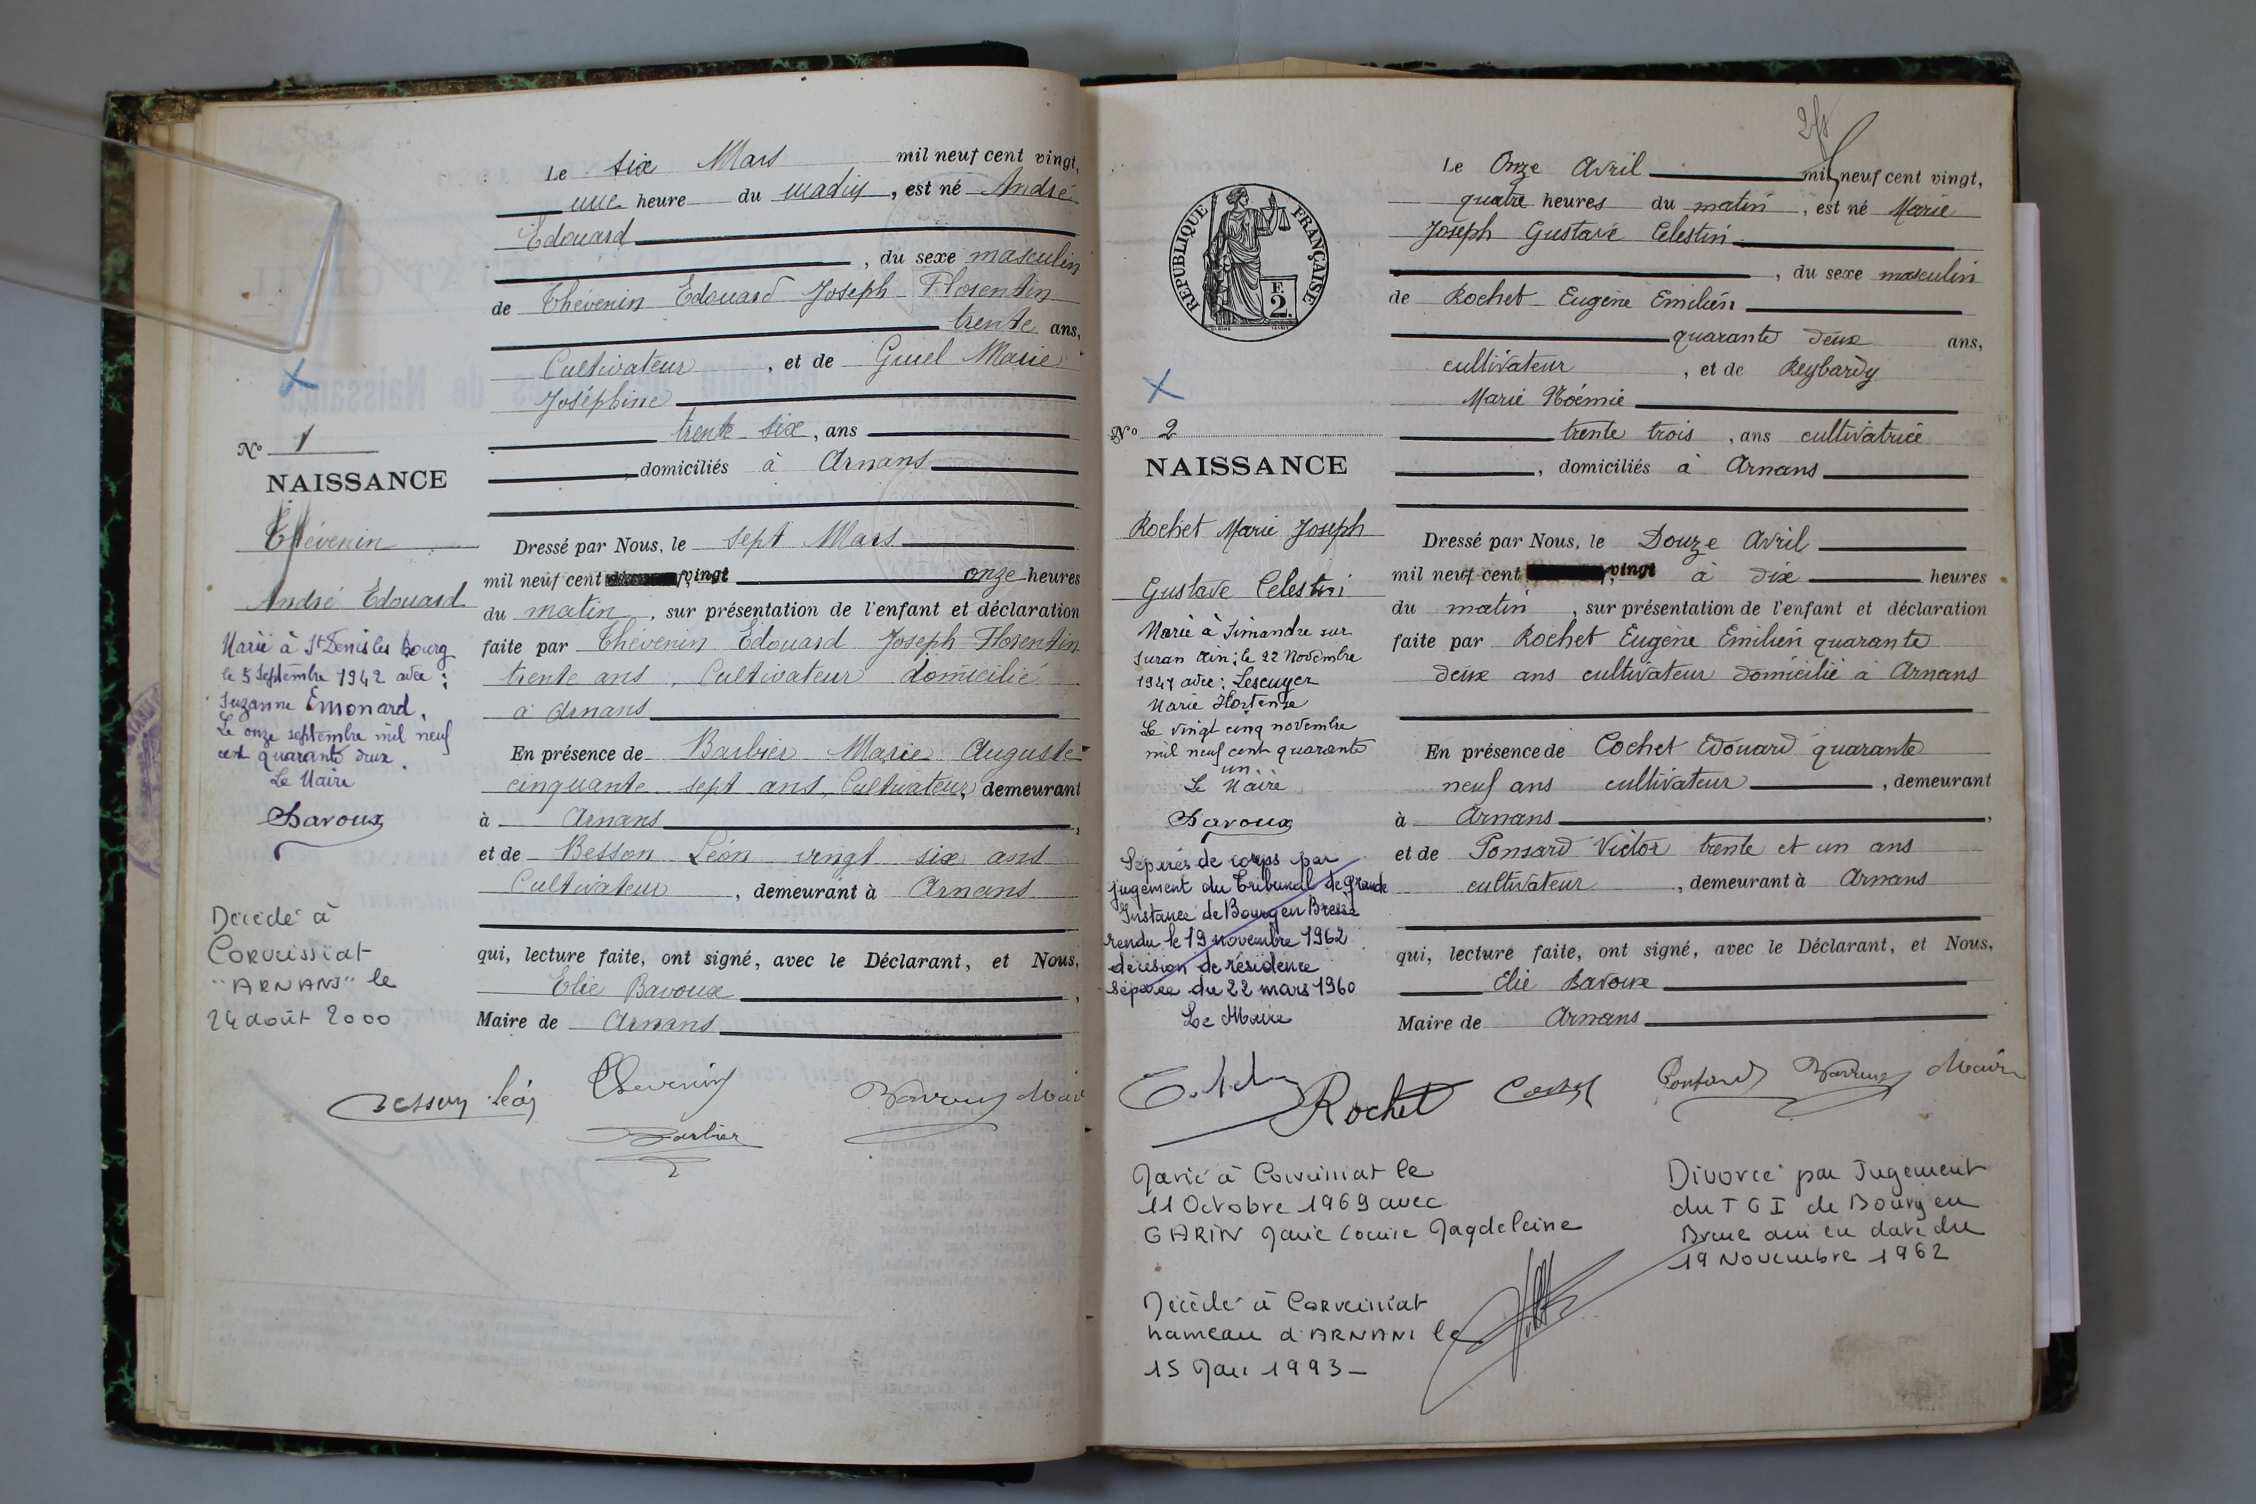 Le six Mars mil neuf cent vingt,
une heure du matin, est né André
Edouard
, du sexe masculin
de Thévenin Edouard Joseph Florentin
trente ans,
Cultivateur, et de Guiel Marie
Joséphine
trente six, ans
domiciliés à Arnans
Dressé par Nous, le sept Mars
mil neuf cent vingt onze heures
du matin, sur présentation de l'enfant et déclaration
faite par Thévenin Edouard Joseph Florentin
trente ans, Cultivateur domicilié
à Arnans
En présence de Barbier Marie Auguste
cinquante sept ans, Cultivateur, demeurant
à Arnans,
et de Besson Léon vingt six ans
Cultivateur, demeurant à Arnans
qui, lecture faite, ont signé, avec le Déclarant, et Nous,
Elie Bavoux,
Maire de Arnans
Besson Léon
Thevenin
Barbier
Bavoux Maire
No 1
NAISSANCE
Thévenin
André Edouard
Marié à St Denis les Bourg
le 5 Septembre 1942 avec :
Suzanne Emonard.
Le onze septembre mil neuf
cent quarante deux.
Le Maire
Bavoux
Décédé à
Corveissiat
"ARNANS" le
24 août 2000
RÉPUBLIQUE FRANÇAISE
F.
2.
Le Onze Avril mil neuf cent vingt,
quatre heures du matin, est né Marie
Joseph Gustave Celestin
, du sexe masculin
de Rochet Eugène Emilien
quarante deux ans,
cultivateur, et de Reybardy
Marie Noémie
trente trois, ans cultivatrice
, domiciliés à Arnans
Dressé par Nous, le Douze Avril
mil neuf cent vingt à dix heures
du matin, sur présentation de l'enfant et déclaration
faite par Rochet Eugène Emilien quarante
deux ans cultivateur domicilié à Arnans
En présence de Cochet Edouard quarante
neuf ans cultivateur, demeurant
à Arnans,
et de Ponsard Victor trente et un ans
cultivateur, demeurant à Arnans
qui, lecture faite, ont signé, avec le Déclarant, et Nous,
Elie Bavoux
Maire de Arnans
Rochet Cochet Ponsard Bavoux Maire
No 2
NAISSANCE
Rochet Marie Joseph
Gustave Celestin
Marié à Simandre sur
Suran Ain; le 22 Novembre
1941 avec : Lescuyer
Marie Hortense
Le vingt cinq novembre
mil neuf cent quarante
un.
Le Maire
Bavoux
Séparés de corps par
jugement du Tribunal de Grande
Instance de Bourg en Bresse
rendu le 19 novembre 1962
décision de résidence
séparée du 22 mars 1960
Le Maire
Marié à Corveissiat le
11 Octobre 1969 avec
GARIN Marie Louise Magdeleine
Décédé à Corveissiat
hameau d'ARNANS le
15 Mai 1993 –
Divorcé par Jugement
du TGI de Bourg en
Bresse ain en date du
19 Novembre 1962